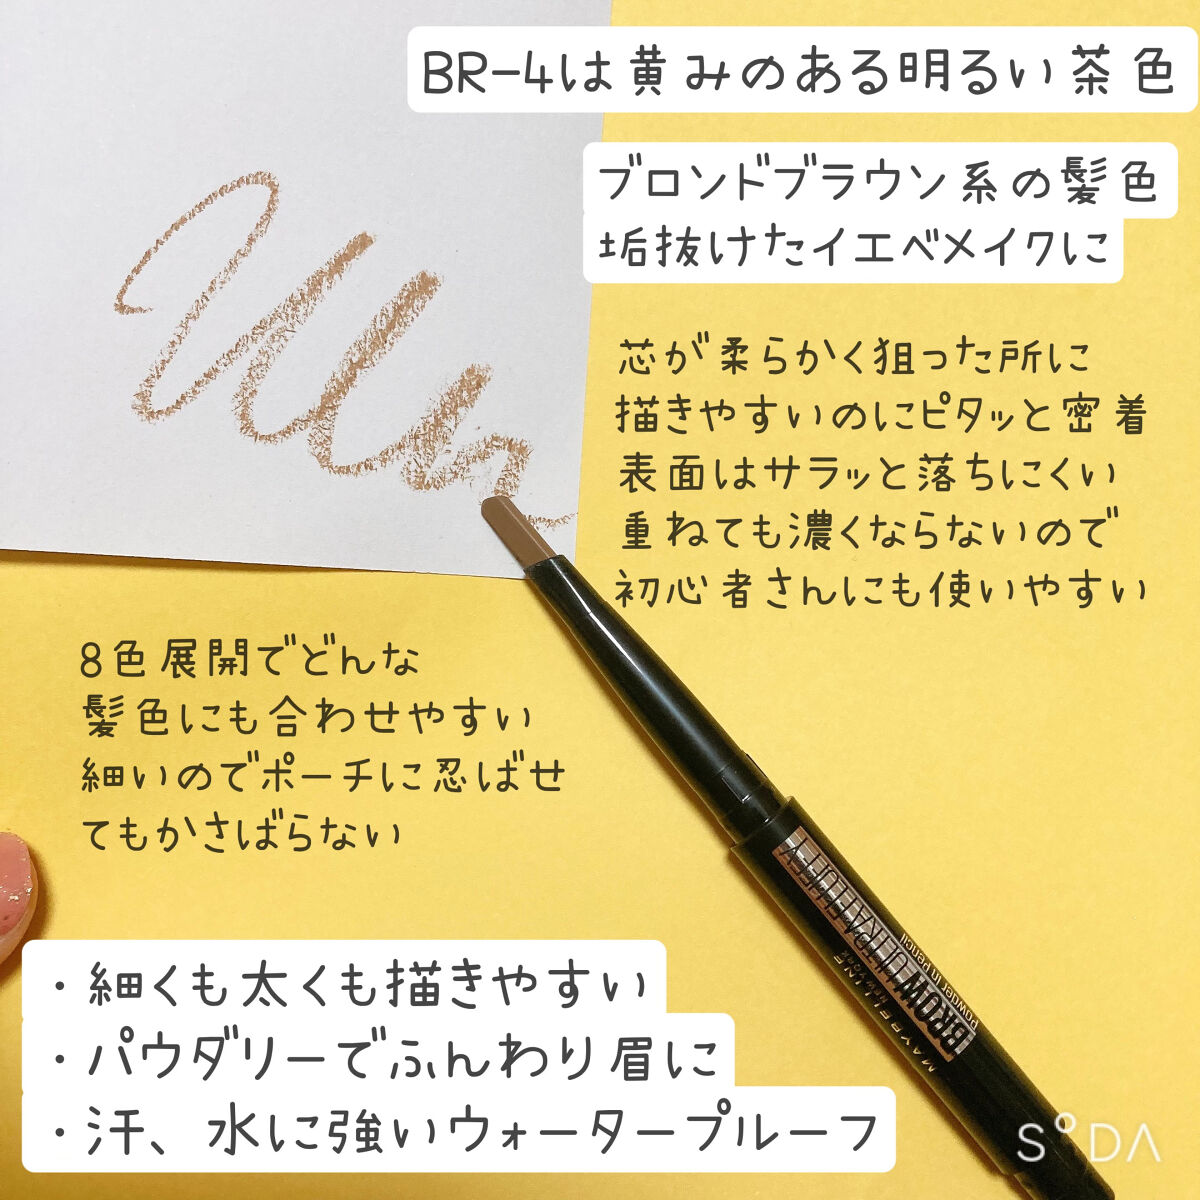 BR-4は黄みのある明るい茶色
ブロンドブラウン系の髪色
垢抜けたイエベメイクに
芯が柔らかく狙った所に
描きやすいのにピタッと密着
表面はサラッと落ちにくい
重ねても濃くならないので
初心者さんにも使いやすい
8色展開でどんな
髪色にも合わせやすい
細いのでポーチに忍ばせ
てもかさばらない
MAYBELLINE
NEW YORK
BROW ULTRA FLUFFY
Powder In Pencil
・細くも太くも描きやすい
・パウダリーでふんわり眉に
・汗、水に強いウォータープルーフ
SODA